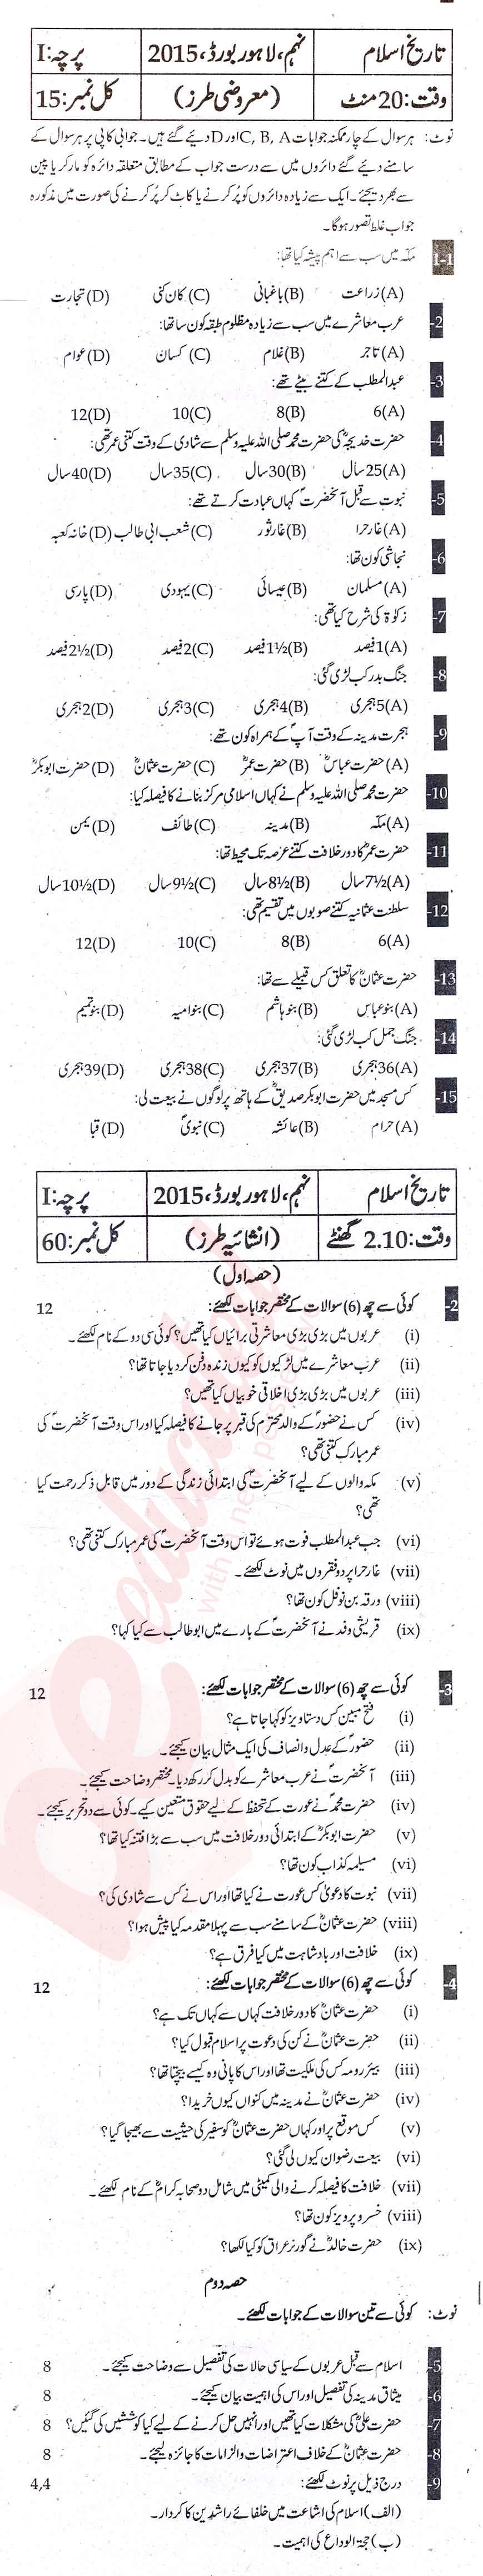 تاریخ اسلام نہم، لاہور بورڈ، 2015 پرچہ: I
وقت: 20 منٹ (معروضی طرز) کل نمبر: 15
نوٹ: ہر سوال کے چار ممکنہ جوابات C, B, A اور D دیئے گئے ہیں۔ جوابی کاپی پر ہر سوال کے
سامنے دیئے گئے دائروں میں سے درست جواب کے مطابق متعلقہ دائرہ کو مارکر یا پین
سے بھر دیجئے۔ ایک سے زیادہ دائروں کو پُر کرنے یا کاٹ کر پُر کرنے کی صورت میں مذکورہ
جواب غلط تصور ہوگا۔
1-1 مکہ میں سب سے اہم پیشہ کیا تھا:
(A) زراعت (B) باغبانی (C) کان کنی (D) تجارت
-2 عرب معاشرے میں سب سے زیادہ مظلوم طبقہ کون سا تھا:
(A) تاجر (B) غلام (C) کسان (D) عوام
-3 عبدالمطلب کے کتنے بیٹے تھے:
(A) 6 (B) 8 (C) 10 (D) 12
-4 حضرت خدیجہؓ کی حضرت محمد صلی اللہ علیہ وسلم سے شادی کے وقت کتنی عمر تھی:
(A) 25 سال (B) 30 سال (C) 35 سال (D) 40 سال
-5 نبوت سے قبل آنحضرتؐ کہاں عبادت کرتے تھے:
(A) غار حرا (B) غار ثور (C) شعب ابی طالب (D) خانہ کعبہ
-6 نجاشی کون تھا:
(A) مسلمان (B) عیسائی (C) یہودی (D) پارسی
-7 زکوٰۃ کی شرح کیا تھی:
(A) 1 فیصد (B) 1½ فیصد (C) 2 فیصد (D) 2½ فیصد
-8 جنگ بدر کب لڑی گئی:
(A) 5 ہجری (B) 4 ہجری (C) 3 ہجری (D) 2 ہجری
-9 ہجرت مدینہ کے وقت آپؐ کے ہمراہ کون تھے:
(A) حضرت عباسؓ (B) حضرت عمرؓ (C) حضرت عثمانؓ (D) حضرت ابوبکرؓ
-10 حضرت محمد صلی اللہ علیہ وسلم نے کہاں اسلامی مرکز بنانے کا فیصلہ کیا:
(A) مکہ (B) مدینہ (C) طائف (D) یمن
-11 حضرت عمرؓ کا دور خلافت کتنے عرصہ تک محیط تھا:
(A) 7½ سال (B) 8½ سال (C) 9½ سال (D) 10½ سال
-12 سلطنت عثمانیہ کتنے صوبوں میں تقسیم تھی:
(A) 6 (B) 8 (C) 10 (D) 12
-13 حضرت عثمانؓ کا تعلق کس قبیلے سے تھا:
(A) بنو عباس (B) بنو ہاشم (C) بنو امیہ (D) بنو تمیم
-14 جنگ جمل کب لڑی گئی:
(A) 36 ہجری (B) 37 ہجری (C) 38 ہجری (D) 39 ہجری
-15 کس مسجد میں حضرت ابوبکر صدیقؓ کے ہاتھ پر لوگوں نے بیعت لی:
(A) حرام (B) عائشہ (C) نبویؐ (D) قبا
تاریخ اسلام نہم، لاہور بورڈ، 2015 پرچہ: I
وقت: 2.10 گھنٹے (انشائیہ طرز) کل نمبر: 60
(حصہ اول)
-2 کوئی سے چھ (6) سوالات کے مختصر جوابات لکھئے: 12
(i) عربوں میں بڑی بڑی معاشرتی برائیاں کیا تھیں؟ کوئی سی دو کے نام لکھئے۔
(ii) عرب معاشرے میں لڑکیوں کو کیوں زندہ دفن کر دیا جاتا تھا؟
(iii) عربوں میں بڑی بڑی اخلاقی خوبیاں کیا تھیں؟
(iv) کس نے حضورؐ کے والد محترم کی قبر پر جانے کا فیصلہ کیا اور اس وقت آنحضرتؐ کی
عمر مبارک کتنی تھی؟
(v) مکہ والوں کے لیے آنحضرتؐ کی ابتدائی زندگی کے دور میں قابل ذکر رحمت کیا
تھی؟
(vi) جب عبدالمطلب فوت ہوئے تو اس وقت آنحضرتؐ کی عمر مبارک کتنی تھی؟
(vii) غار حرا پر دو فقروں میں نوٹ لکھئے۔
(viii) ورقہ بن نوفل کون تھا؟
(ix) قریشی وفد نے آنحضرتؐ کے بارے میں ابو طالب سے کیا کہا؟
-3 کوئی سے چھ (6) سوالات کے مختصر جوابات لکھئے: 12
(i) فتح مبین کس دستاویز کو کہا جاتا ہے؟
(ii) حضورؐ کے عدل و انصاف کی ایک مثال بیان کیجئے۔
(iii) آنحضرتؐ نے عرب معاشرے کو بدل کر رکھ دیا۔ مختصر وضاحت کیجئے۔
(iv) حضرت محمدؐ نے عورت کے تحفظ کے لیے حقوق متعین کیے۔ کوئی سے دو تحریر کیجئے۔
(v) حضرت ابوبکرؓ کے ابتدائی دور خلافت میں سب سے بڑا فتنہ کیا تھا؟
(vi) مسیلمہ کذاب کون تھا؟
(vii) نبوت کا دعویٰ کس عورت نے کیا تھا اور اس نے کس سے شادی کی؟
(viii) حضرت عثمانؓ کے سامنے سب سے پہلا مقدمہ کیا پیش ہوا؟
(ix) خلافت اور بادشاہت میں کیا فرق ہے؟
-4 کوئی سے چھ (6) سوالات کے مختصر جوابات لکھئے: 12
(i) حضرت عثمانؓ کا دور خلافت کہاں سے کہاں تک ہے؟
(ii) حضرت عثمانؓ نے کن کی دعوت پر اسلام قبول کیا؟
(iii) بیئر رومہ کس کی ملکیت تھا اور اس کا پانی وہ کیسے بیچتا تھا؟
(iv) حضرت عثمانؓ نے مدینہ میں کنواں کیوں خریدا؟
(v) کس موقع پر اور کہاں حضرت عثمانؓ کو سفیر کی حیثیت سے بھیجا گیا؟
(vi) بیعت رضوان کیوں لی گئی؟
(vii) خلافت کا فیصلہ کرنے والی کمیٹی میں شامل دو صحابہ کرامؓ کے نام لکھئے۔
(viii) خسرو پرویز کون تھا؟
(ix) حضرت خالدؓ نے گورنر عراق کو کیا لکھا؟
حصہ دوم
نوٹ: کوئی سے تین سوالات کے جوابات لکھئے۔
-5 اسلام سے قبل عربوں کے سیاسی حالات کی تفصیل سے وضاحت کیجئے۔ 8
-6 میثاق مدینہ کی تفصیل اور اس کی اہمیت بیان کیجئے۔ 8
-7 حضرت علیؓ کی مشکلات کیا تھیں اور انہیں حل کرنے کے لیے کیا کوششیں کی گئیں؟ 8
-8 حضرت عثمانؓ کے خلاف اعتراضات و الزامات کا جائزہ لیجئے۔ 8
-9 درج ذیل پر نوٹ لکھئے: 4,4
(الف) اسلام کی اشاعت میں خلفائے راشدین کا کردار۔
(ب) حجۃ الوداع کی اہمیت۔